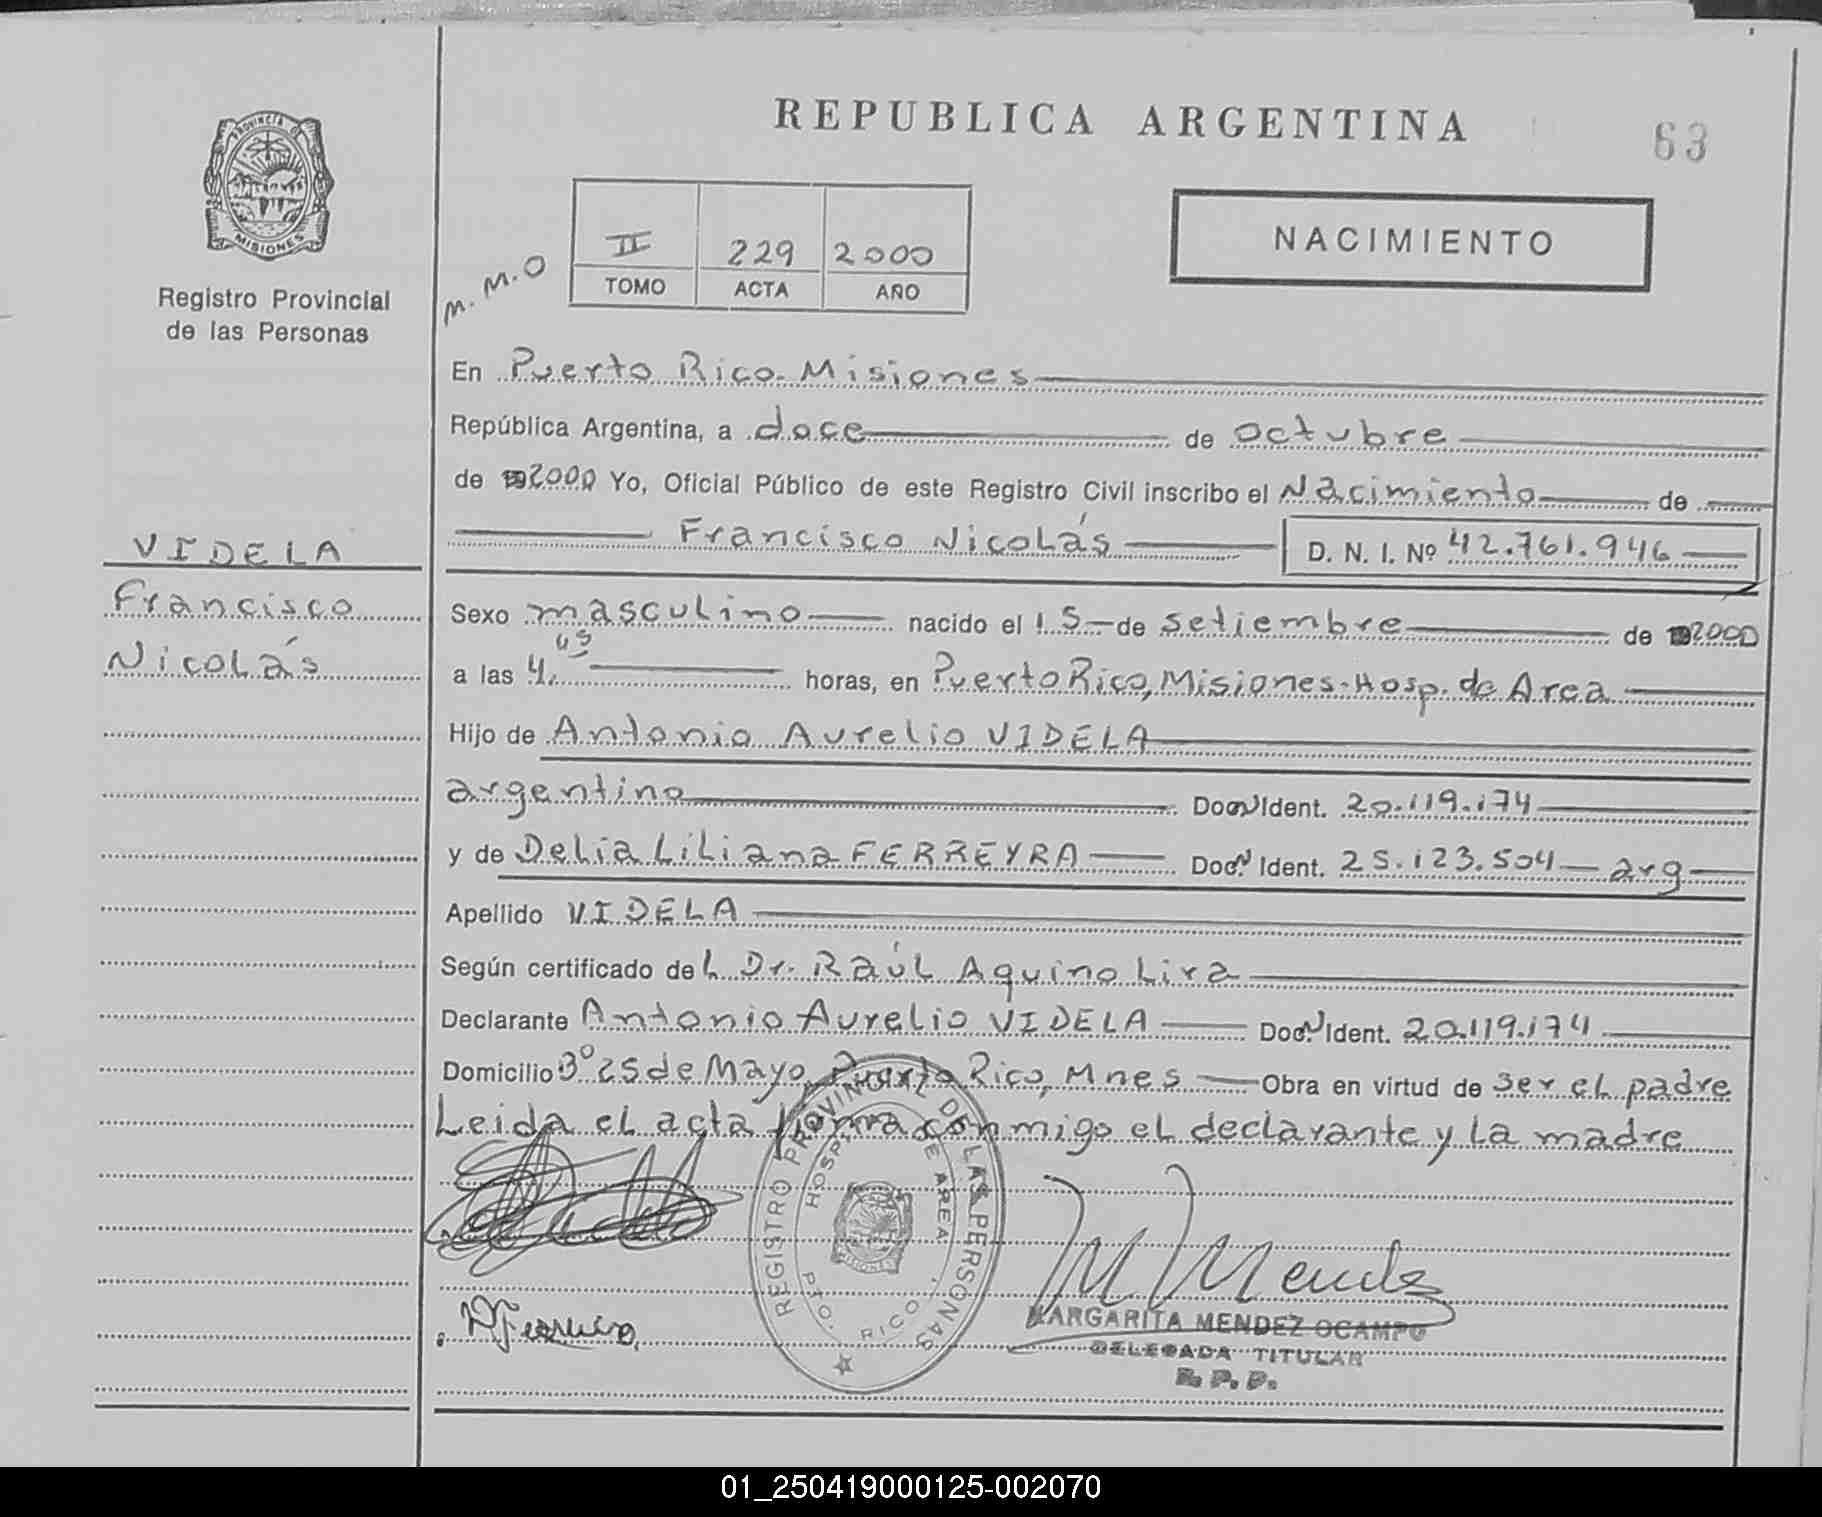 REPUBLICA ARGENTINA
63
PROVINCIA DE MISIONES
Registro Provincial
de las Personas
M. M. O
II 229 2000
TOMO ACTA AÑO
NACIMIENTO
En Puerto Rico. Misiones
República Argentina, a doce de octubre
de 2000 Yo, Oficial Público de este Registro Civil inscribo el Nacimiento de
Francisco Nicolás D. N. I. Nº 42.761.946
VIDELA
Francisco
Nicolás
Sexo masculino nacido el 15 de setiembre de 2000
a las 4,45 horas, en Puerto Rico, Misiones-Hosp. de Area
Hijo de Antonio Aurelio VIDELA
argentino Doc. Ident. 20.119.174
y de Delia Liliana FERREYRA Doc. Ident. 25.123.504 arg
Apellido VIDELA
Según certificado del Dr. Raúl Aquino Lira
Declarante Antonio Aurelio VIDELA Doc. Ident. 20.119.174
Domicilio Bº 25 de Mayo, Puerto Rico, Mnes Obra en virtud de ser el padre
Leida el acta firma conmigo el declarante y la madre
REGISTRO PROVINCIAL DE LAS PERSONAS
HOSP. DE AREA
PTO. RICO
MISIONES
M Mendez
MARGARITA MENDEZ OCAMPO
DELEGADA TITULAR
R. P. P.
01_250419000125-002070